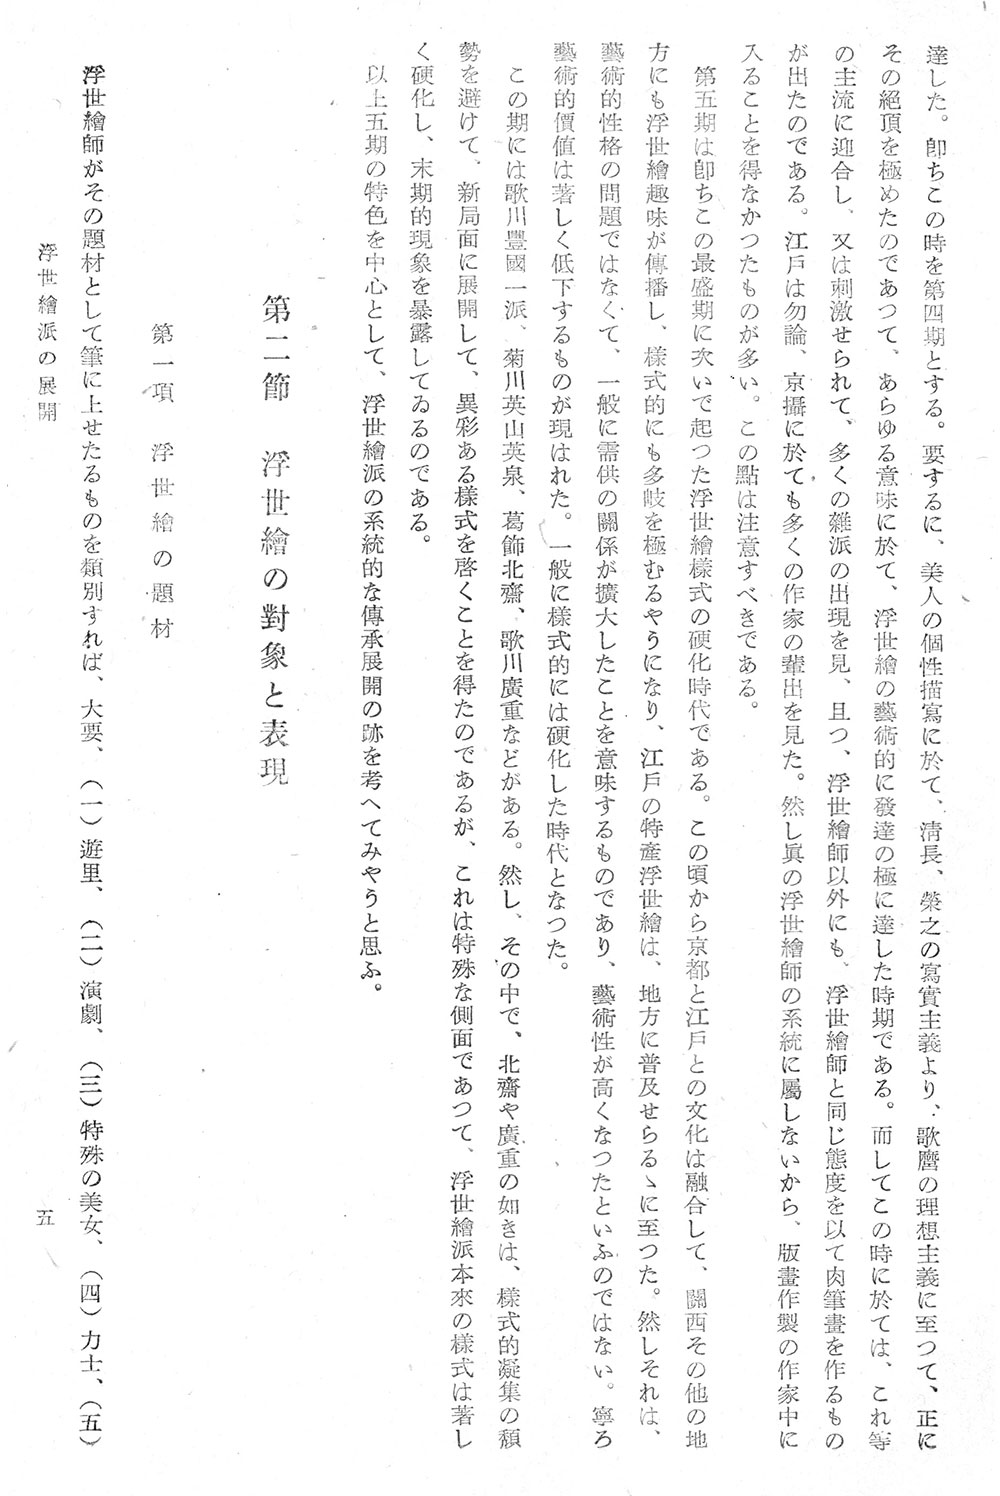 達した。卽ちこの時を第四期とする。要するに、美人の個性描寫に於て、淸長、榮之の寫實主義より、歌麿の理想主義に至つて、正に
その絕頂を極めたのであつて、あらゆる意味に於て、浮世繪の藝術的に發達の極に達した時期である。而してこの時に於ては、これ等
の主流に迎合し、又は刺激せられて、多くの雜派の出現を見、且つ、浮世繪師以外にも、浮世繪師と同じ態度を以て肉筆畫を作るもの
が出たのである。江戶は勿論、京攝に於ても多くの作家の輩出を見た。然し眞の浮世繪師の系統に屬しないから、版畫作製の作家中に
入ることを得なかつたものが多い。この點は注意すべきである。
第五期は卽ちこの最盛期に次いで起つた浮世繪樣式の硬化時代である。この頃から京都と江戶との文化は融合して、關西その他の地
方にも浮世繪趣味が傳播し、樣式的にも多岐を極むるやうになり、江戶の特產浮世繪は、地方に普及せらるゝに至つた。然しそれは、
藝術的性格の問題ではなくて、一般に需供の關係が擴大したことを意味するものであり、藝術性が高くなつたといふのではない。寧ろ
藝術的價値は著しく低下するものが現はれた。一般に樣式的には硬化した時代となつた。
この期には歌川豐國一派、菊川英山英泉、葛飾北齋、歌川廣重などがある。然し、その中で、北齋や廣重の如きは、樣式的凝集の頽
勢を避けて、新局面に展開して、異彩ある樣式を啓くことを得たのであるが、これは特殊な側面であつて、浮世繪派本來の樣式は著し
く硬化し、末期的現象を暴露してゐるのである。
以上五期の特色を中心として、浮世繪派の系統的な傳承展開の跡を考へてみやうと思ふ。
第二節　浮世繪の對象と表現
第一項　浮世繪の題材
浮世繪師がその題材として筆に上せたるものを類別すれば、大要、(一)遊里、(二)演劇、(三)特殊の美女、(四)力士、(五)
浮世繪派の展開
五